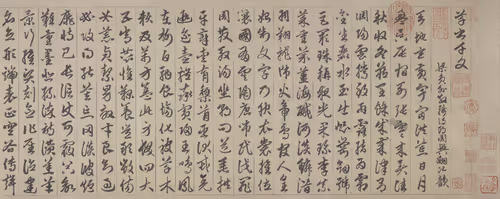 草書千文
梁員外散騎侍郎周興嗣次韻
天地玄黃宇宙洪荒日月
盈昃辰宿列張寒來暑往
秋收冬藏閏餘成歲律呂
調陽雲騰致雨露結為霜
金生麗水玉出崑崗劍號
巨闕珠稱夜光菓珍李柰
菜重芥薑海鹹河淡鱗潛
羽翔龍師火帝鳥官人皇
始制文字乃服衣裳推位
讓國有虞陶唐弔民伐罪
周發殷湯坐朝問道垂拱
平章愛育黎首臣伏戎羌
遐邇壹體率賓歸王鳴鳳
在樹白駒食場化被草木
賴及萬方蓋此身髮四大
五常恭惟鞠養豈敢毀傷
女慕貞潔男效才良知過
必改得能莫忘罔談彼短
靡恃己長信使可覆器欲
難量墨悲絲染詩讚羔羊
景行維賢剋念作聖德建
名立形端表正空谷傳聲